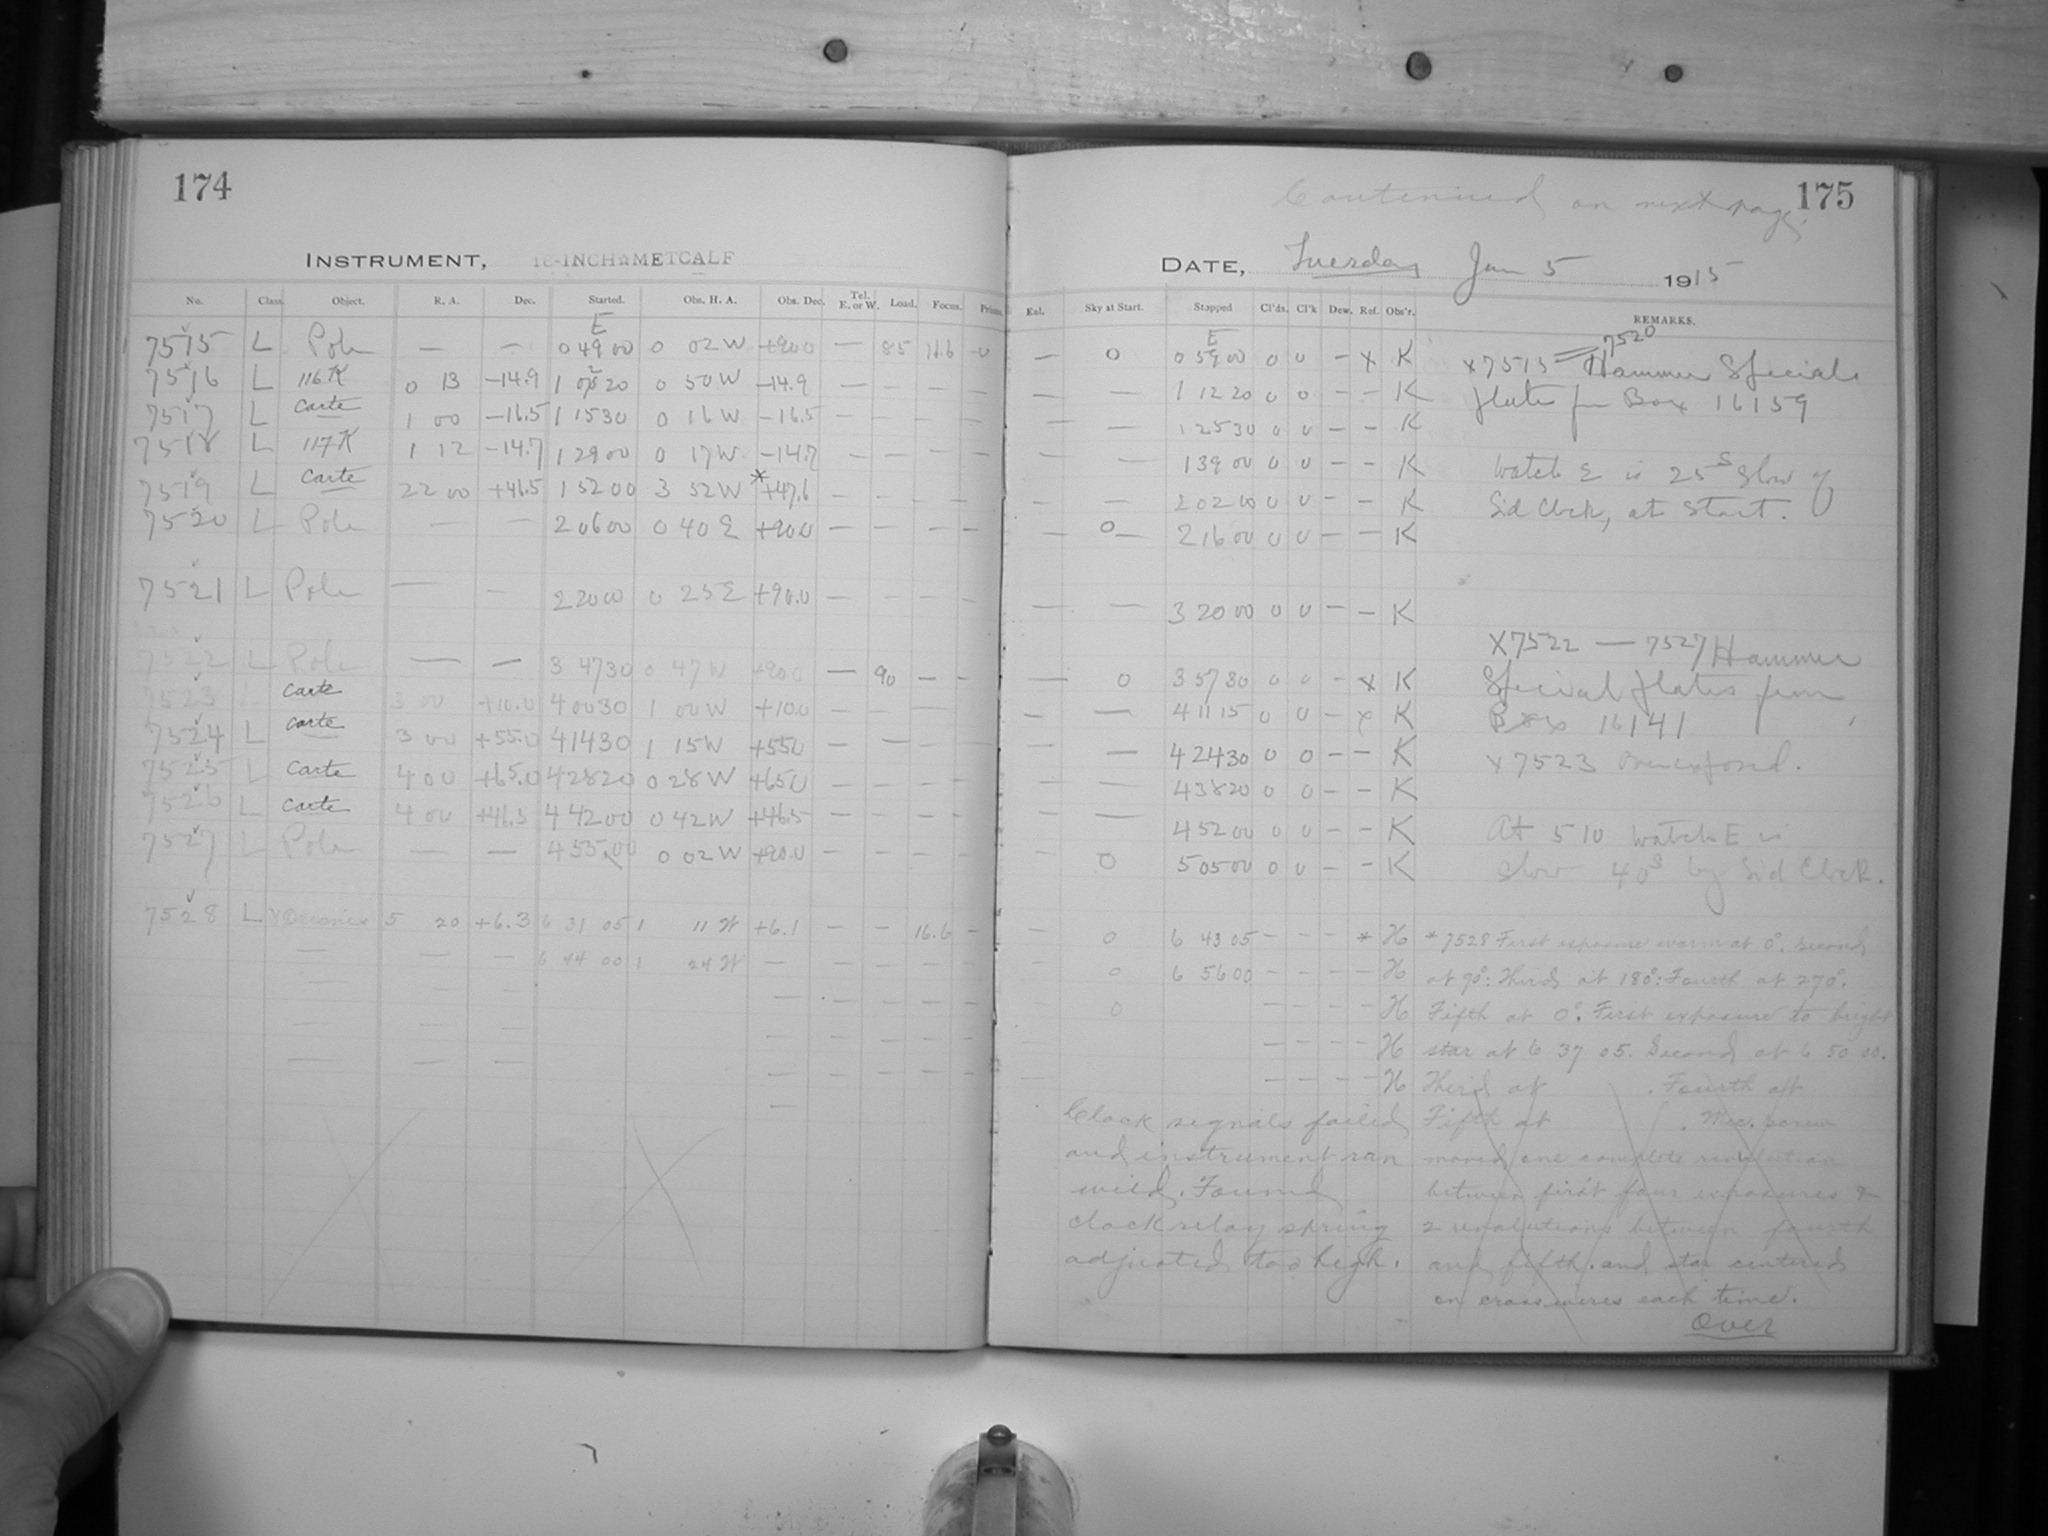 174
INSTRUMENT, 16-INCH METCALF
No. Class. Object. R. A. Dec. Started. Obs. H. A. Obs. Dec. Tel. E. or W. Load. Focus. Prisms.
E
7515 L Pole — — 0 49 00 0 02 W +90.0 — 85 16.6 0
7516 L 116 K 0 13 -14.9 1 02 20 0 50 W -14.9 — — — —
7517 L Carte 1 00 -16.5 1 15 30 0 16 W -16.5 — — — —
7518 L 117 K 1 12 -14.7 1 29 00 0 17 W -14.7 — — — —
7519 L Carte 22 00 +46.5 1 52 00 3 52 W *+47.6 — — — —
7520 L Pole — — 2 06 00 0 40 E +90.0 — — — —
7521 L Pole — — 2 20 00 0 25 E +90.0 — — — —
7522 L Pole — — 3 47 30 0 47 W +90.0 — 90 — —
7523 Carte 3 00 +10.0 4 00 30 1 00 W +10.0 — — —
7524 L Carte 3 00 +55.0 4 14 30 1 15 W +55.0 — — — —
7525 L Carte 4 00 +65.0 4 28 20 0 28 W +65.0 — — — —
7526 L Carte 4 00 +46.5 4 42 00 0 42 W +46.5 — — — —
7527 L Pole — — 4 55 00 0 02 W +90.0 — — — —
7528 L γ Orionis 5 20 +6.3 6 31 05 1 11 W +6.1 — — 16.6 —
— — — 6 44 00 1 24 W — — — — —
175
Continued on next page.
DATE, Tuesday Jan 5 1915
Exl. Sky at Start. Stopped Cl'ds. Cl'k Dew. Ref. Obs'r. REMARKS.
E
— 0 0 59 00 0 0 — x K x7515 — 7520 Hammer Special
— — 1 12 20 0 0 — — K plates from Box 16159
— — 1 25 30 0 0 — — K
— — 1 39 00 0 0 — — K Watch E is 25s slow of
— — 2 02 00 0 0 — — K Sid Clock, at start.
— 0 — 2 16 00 0 0 — — K
— — 3 20 00 0 0 — — K
x7522 — 7527 Hammer
— 0 3 57 30 0 0 — x K Special plates from
— — 4 11 15 0 0 — x K Box 16141
— — 4 24 30 0 0 — — K x 7523 Overexposed.
— — 4 38 20 0 0 — — K
— — 4 52 00 0 0 — — K At 5 10 watch E is
— 0 5 05 00 0 0 — — K slow 40s by Sid Clock.
— 0 6 43 05 — — — * H * 7528 First exposure worm at 0°. second
— 0 6 56 00 — — — — H at 90°: Third at 180°: Fourth at 270°.
0 — — — — H Fifth at 0°. First exposure to bright
— — — — H star at 6 37 05. Second at 6 50 00.
— — — — H Third at . Fourth at
Clock signals failed Fifth at . Mic. screw
and instrument ran moved one complete revolution
wild. Found between first four exposures &
clock relay spring 2 revolutions between fourth
adjusted too high. and fifth. and star centered
on crosswires each time.
Over